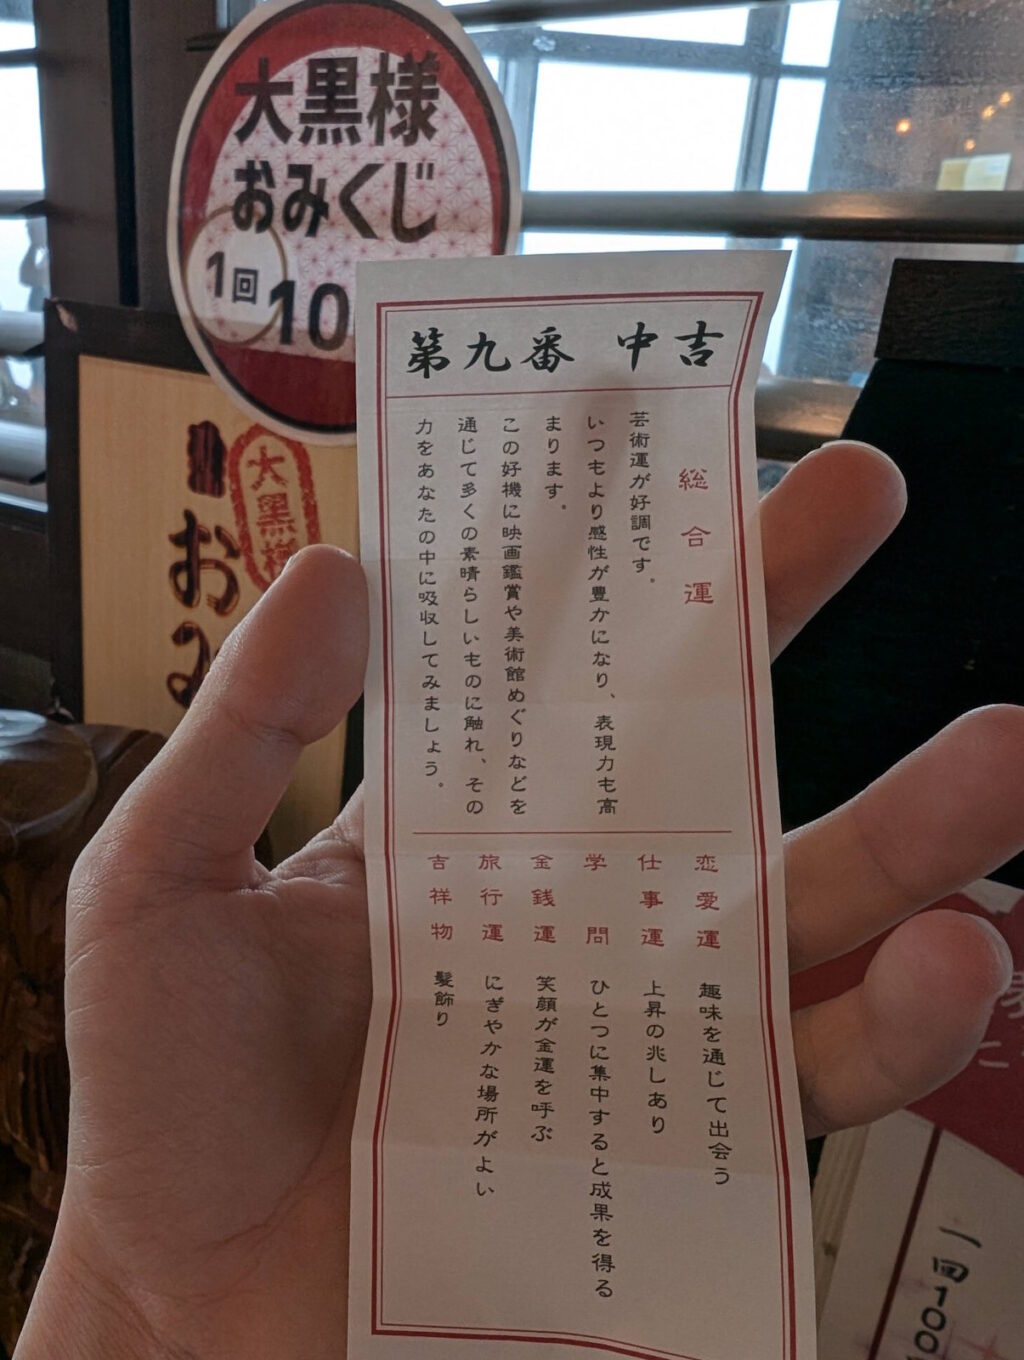 大黒様
おみくじ
1回
10
大黒様
お
第九番 中吉
総合運
芸術運が好調です。
いつもより感性が豊かになり、表現力も高
まります。
この好機に映画鑑賞や美術館めぐりなどを
通じて多くの素晴らしいものに触れ、その
力をあなたの中に吸収してみましょう。
恋愛運 趣味を通じて出会う
仕事運 上昇の兆しあり
学問 ひとつに集中すると成果を得る
金銭運 笑顔が金運を呼ぶ
旅行運 にぎやかな場所がよい
吉祥物 髪飾り
一回100